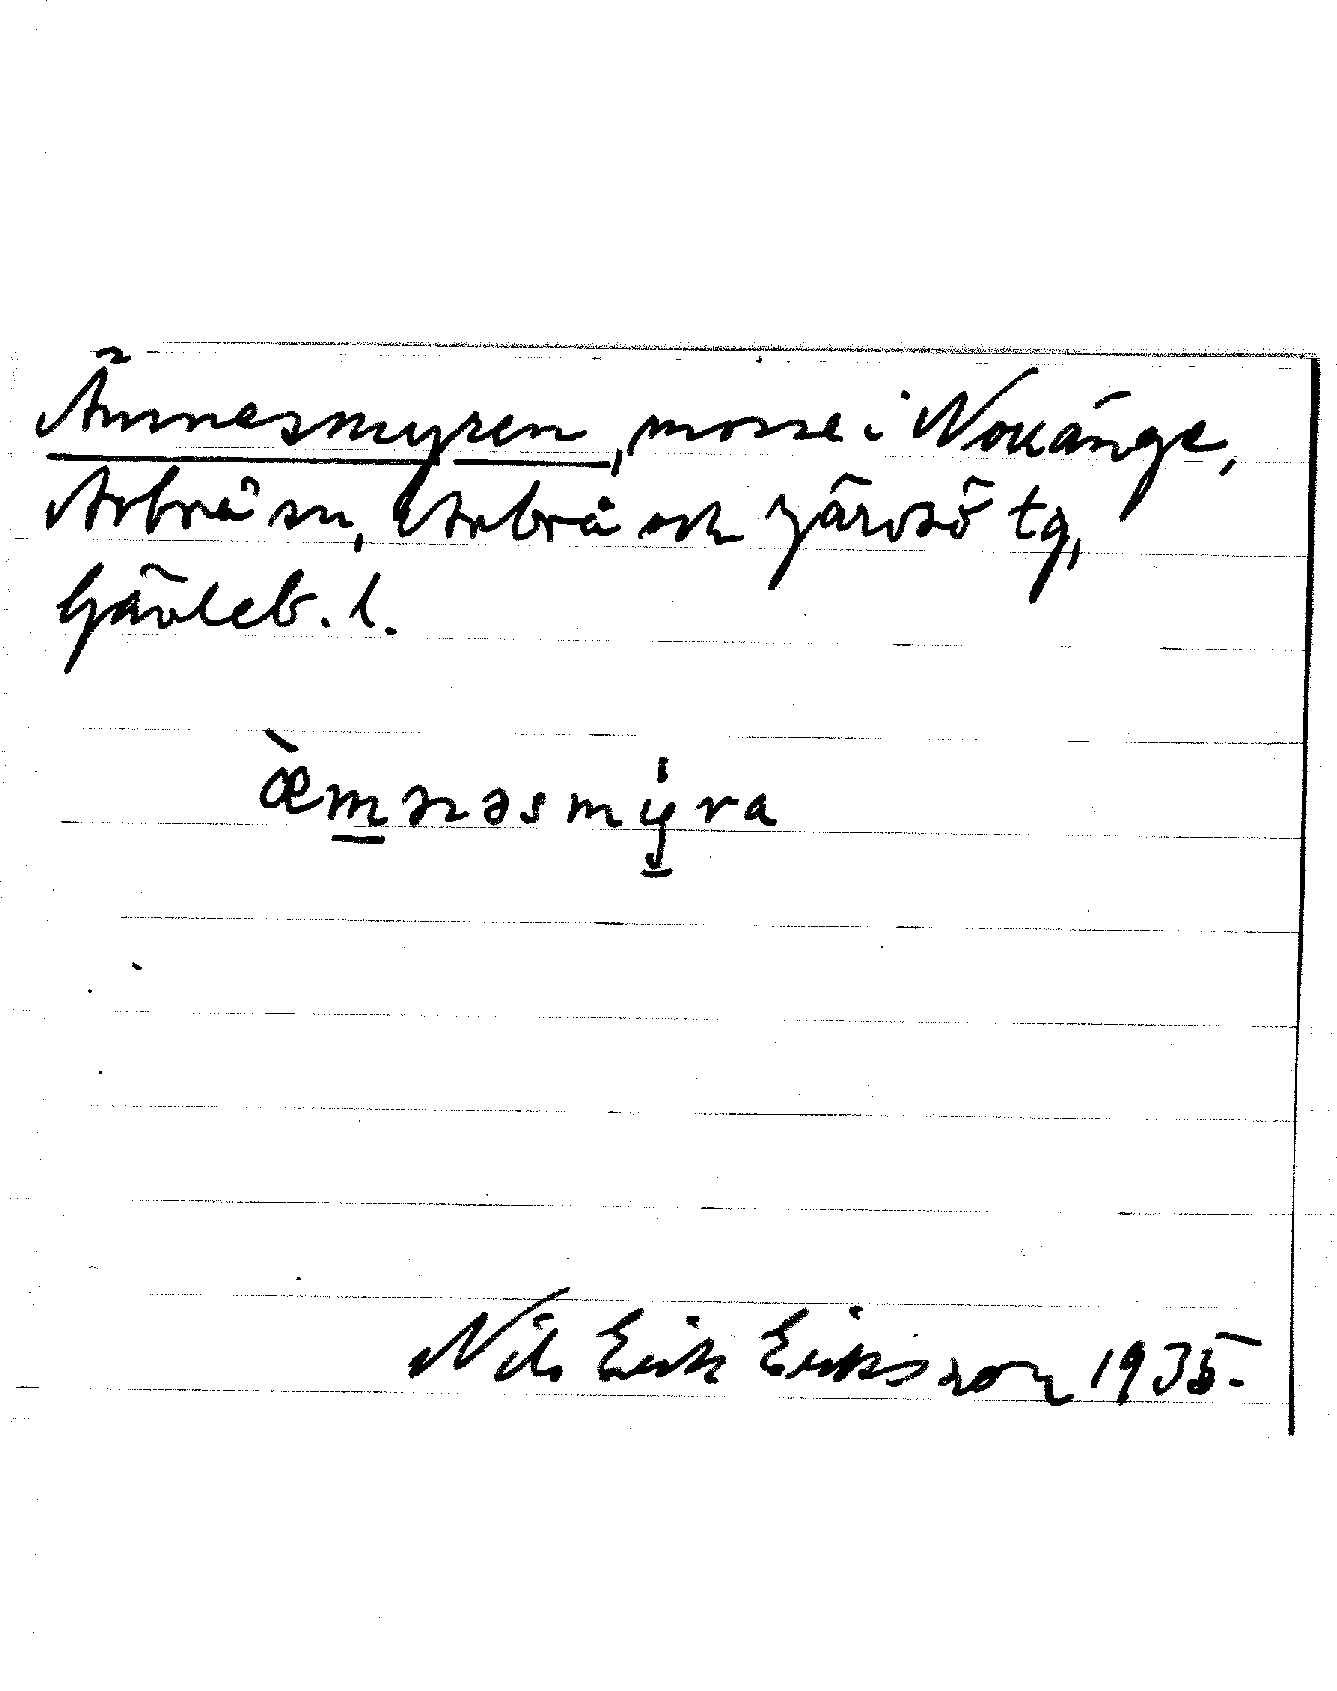 Ämnesmyren, mosse i Nouänge,
Arbrå sn, Arbrå och Järvsö tg,
Gävleb. l.
æ̀mnəsmy̍ra
Nils Erik Eriksson 1935.